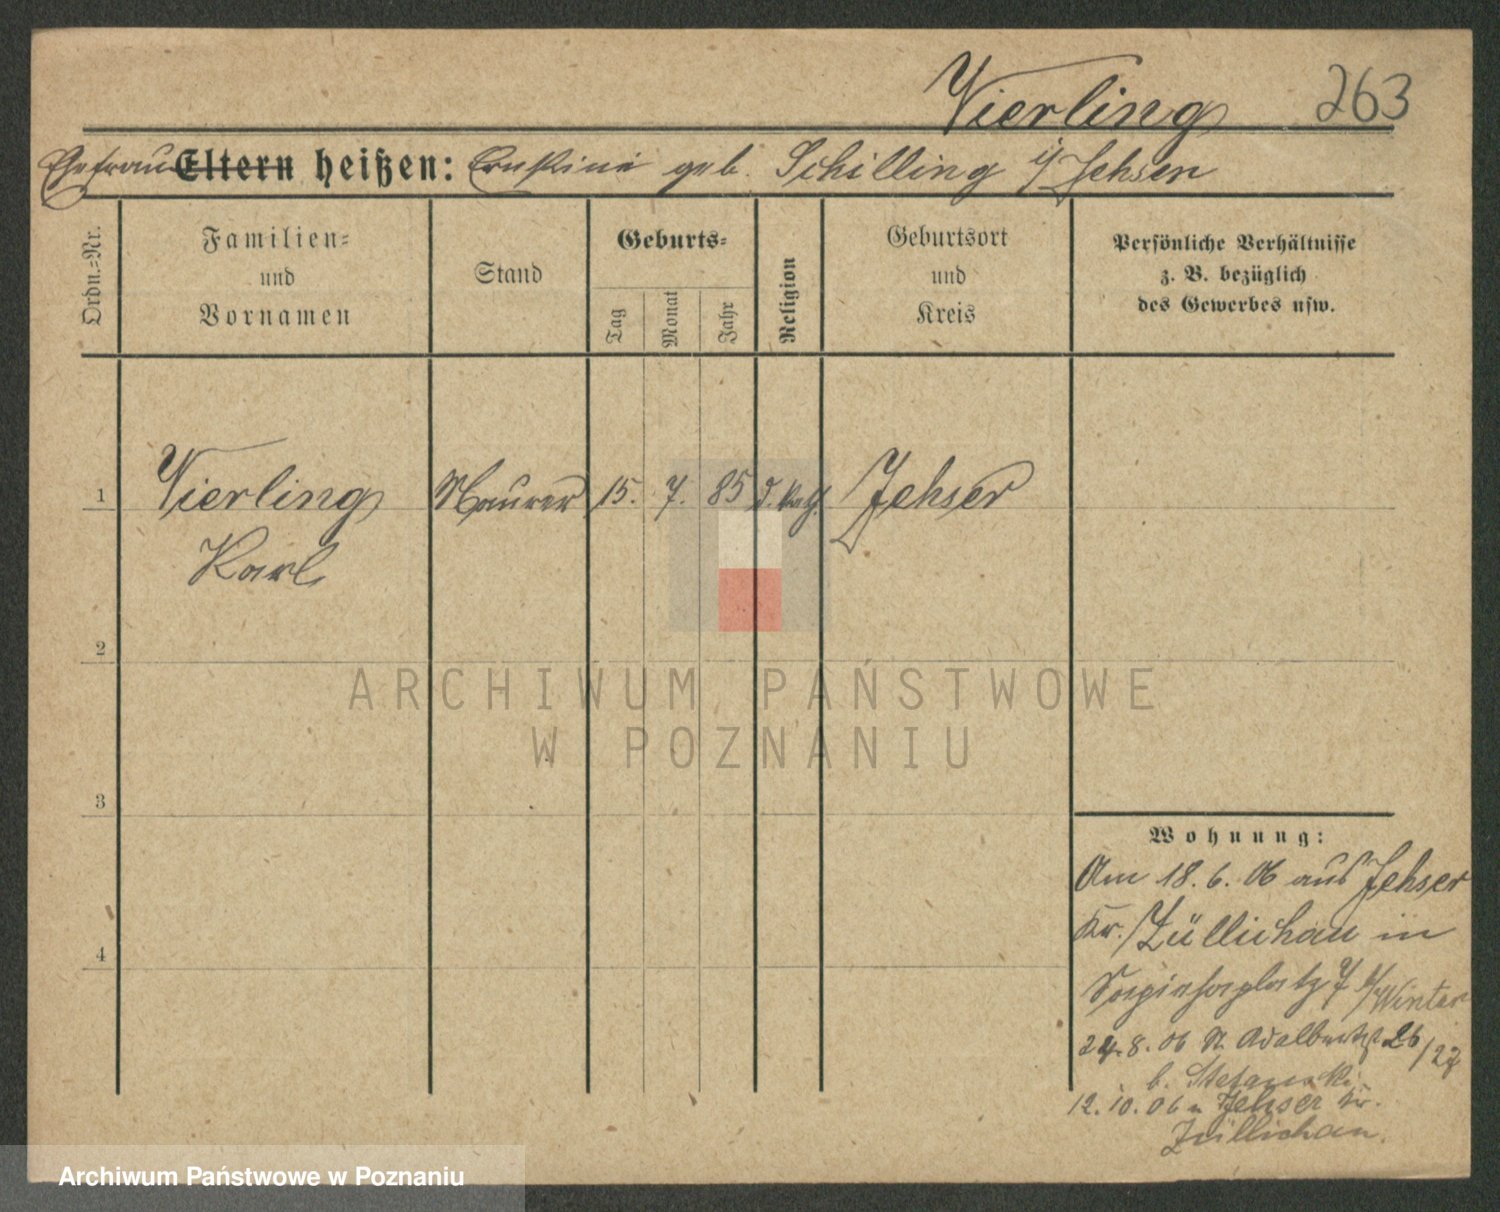 Vierling 263
Ehefrau Eltern heißen: Ernstine geb. Schilling i/Jehser
Ordn.=Nr.
Familien=
und
Vornamen
Stand
Geburts=
Tag
Monat
Jahr
Religion
Geburtsort
und
Kreis
Persönliche Verhältnisse
z. B. bezüglich
des Gewerbes usw.
1 Vierling Maurer 15. 7. 85 Jehser
Karl
2
ARCHIWUM PAŃSTWOWE
W POZNANIU
3
4
Wohnung:
Am 18. 6. 06 aus Jehser
Kr. Züllichau in
Sapiehaplatz 7 b/Winter
24. 8. 06 St. Adalbertst 26/27
b. Stefanski
12. 10. 06 n Jehser Kr.
Züllichau.
Archiwum Państwowe w Poznaniu